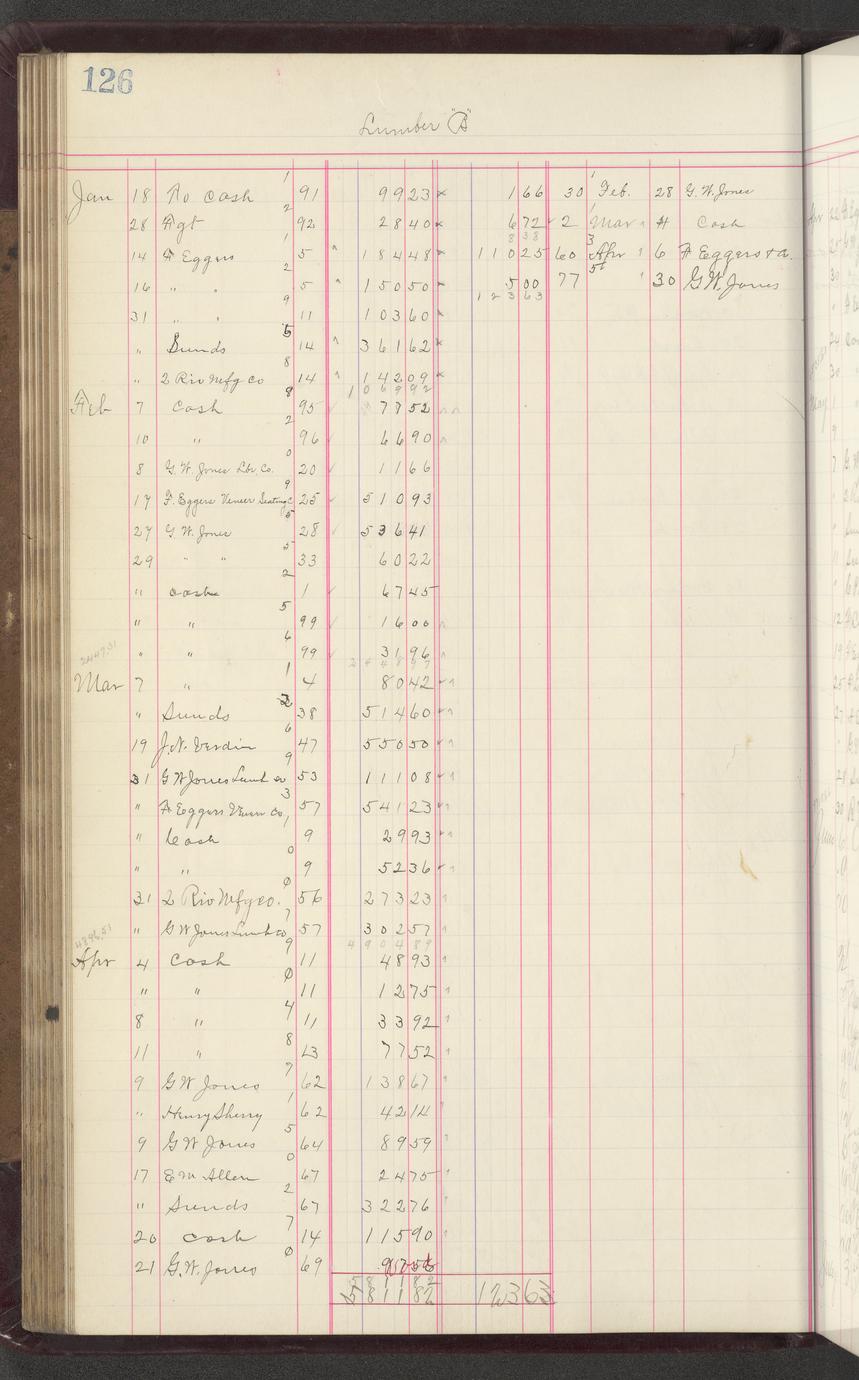 126
Lumber "B"
Jan 18 To Cash 91 99 23 1 66 30 Feb. 28 G.W. Jones
28 Agt 92 28 40 6 72 2 Mar 4 Cash
8 38
14 F Eggers 5 184 48 110 25 60 Apr 6 F Eggers
16 " " 5 150 50 5 00 77 " 30 G.W. Jones
123 63
31 " " 11 103 60
" Sunds 14 361 62
" 2 Riv Mfg Co 14 142 09
1069 92
Feb 7 Cash 95 78 52
10 " 96 66 90
8 G.W. Jones Lbr. Co. 20 11 66
17 F. Eggers Veneer Seating C 25 510 93
27 G.W. Jones 28 536 41
29 " " 33 60 22
" Cash 1 67 45
" " 99 16 00
" " 99 31 96
2447.31
Mar 7 " 4 80 42
" Sunds 38 514 60
19 J.N. Verdin 47 550 50
31 G W Jones Lumb co 53 111 08
" F Eggers Veneer Co, 57 541 23
" Cash 9 29 93
" " 9 52 36
31 2 Riv Mfg co. 56 273 23
" G W Jones Lumb co, 57 302 57
4904 89
Apr 4 Cash 11 48 93
" " 11 12 75
8 " 11 33 92
11 " 13 77 52
9 G W Jones 62 138 67
" Henry Sherry 62 42 14
9 G W Jones 64 89 59
17 E M Allen 67 24 75
" Sunds 67 322 76
20 Cash 14 115 90
21 G.W. Jones 69
5811 82
5811 82 123 63